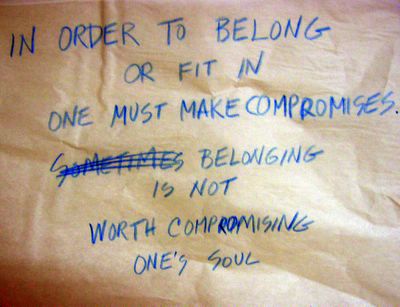 IN ORDER TO BELONG
OR FIT IN
ONE MUST MAKE COMPROMISES.
SOMETIMES BELONGING
IS NOT
WORTH COMPROMISING
ONE'S SOUL